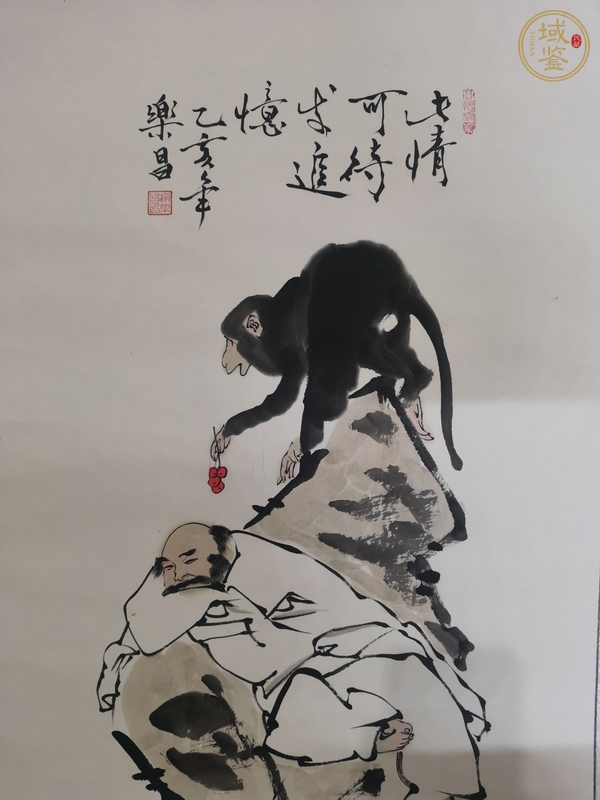 此情
可待
成追
憶
乙亥年
樂昌
域鉴
YUJIAN